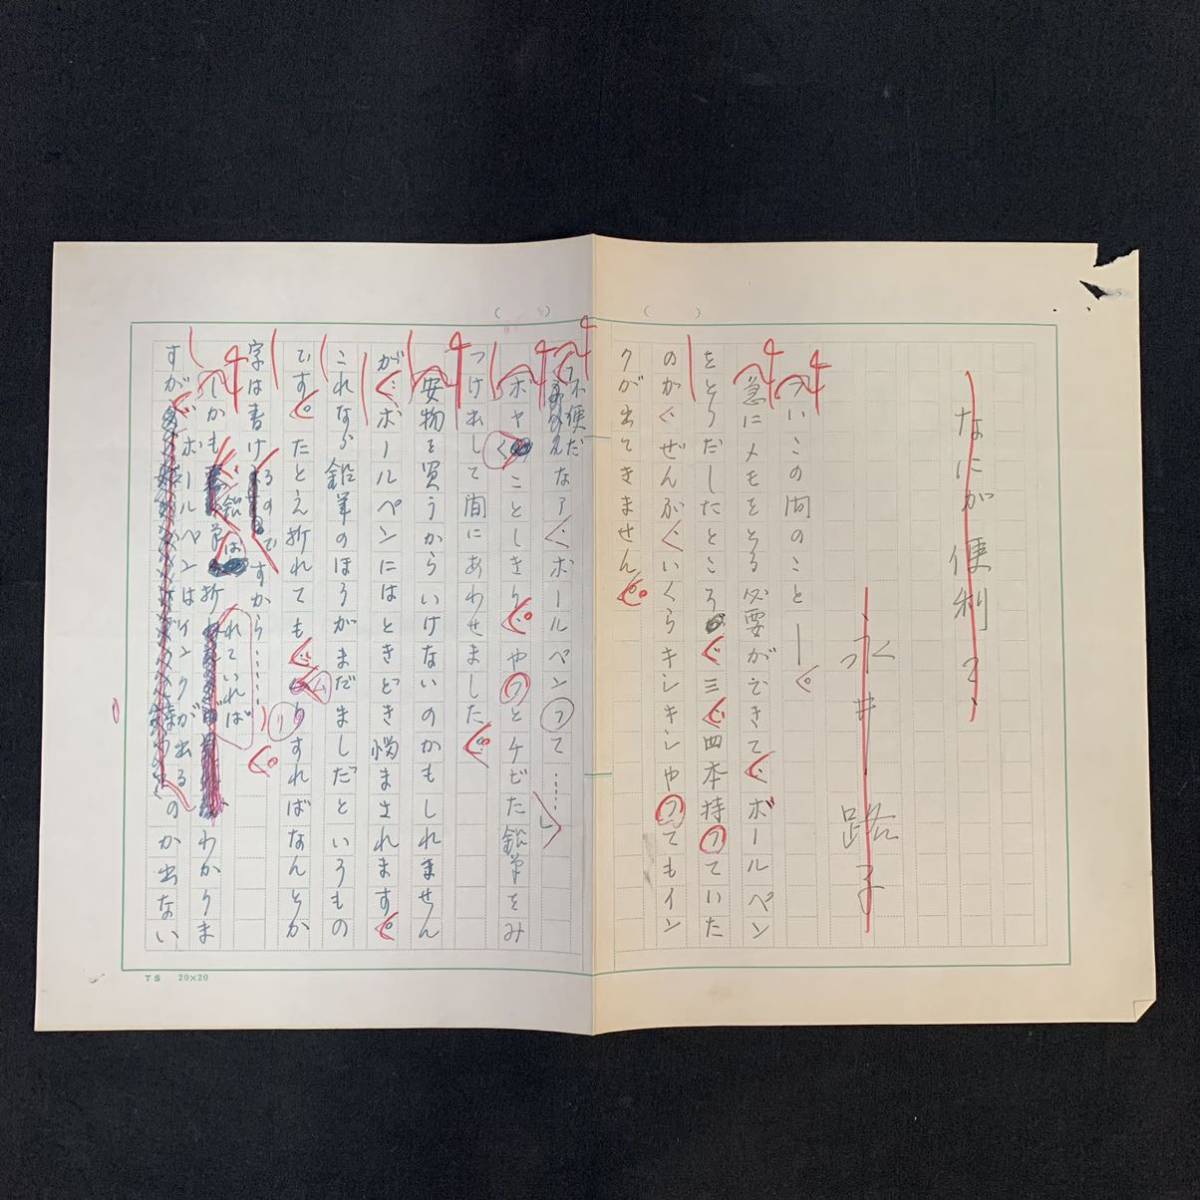 なにが便利？
永井路子
つい この間のこと―。
急にメモをとる必要ができて、ボールペン
をとりだしたところ、三、四本持っていた
のが、ぜんぶ、いくらキンキンやってもイン
クが出てきません。
不便だなア、ボールペンって……」
ボヤくことしきり。やっとチビた鉛筆をみ
つけ出して間にあわせました。
安物を買うからいけないのかもしれません
が、ボールペンにはときどき悩まされます。
これなら鉛筆のほうがまだましだというもの
です。たとえ折れても、ムリすればなんとか
字は書けるのですから……。
しかも鉛筆は折れていればわかりま
すが、ボールペンはインクが出るのか出ない
TS 20×20